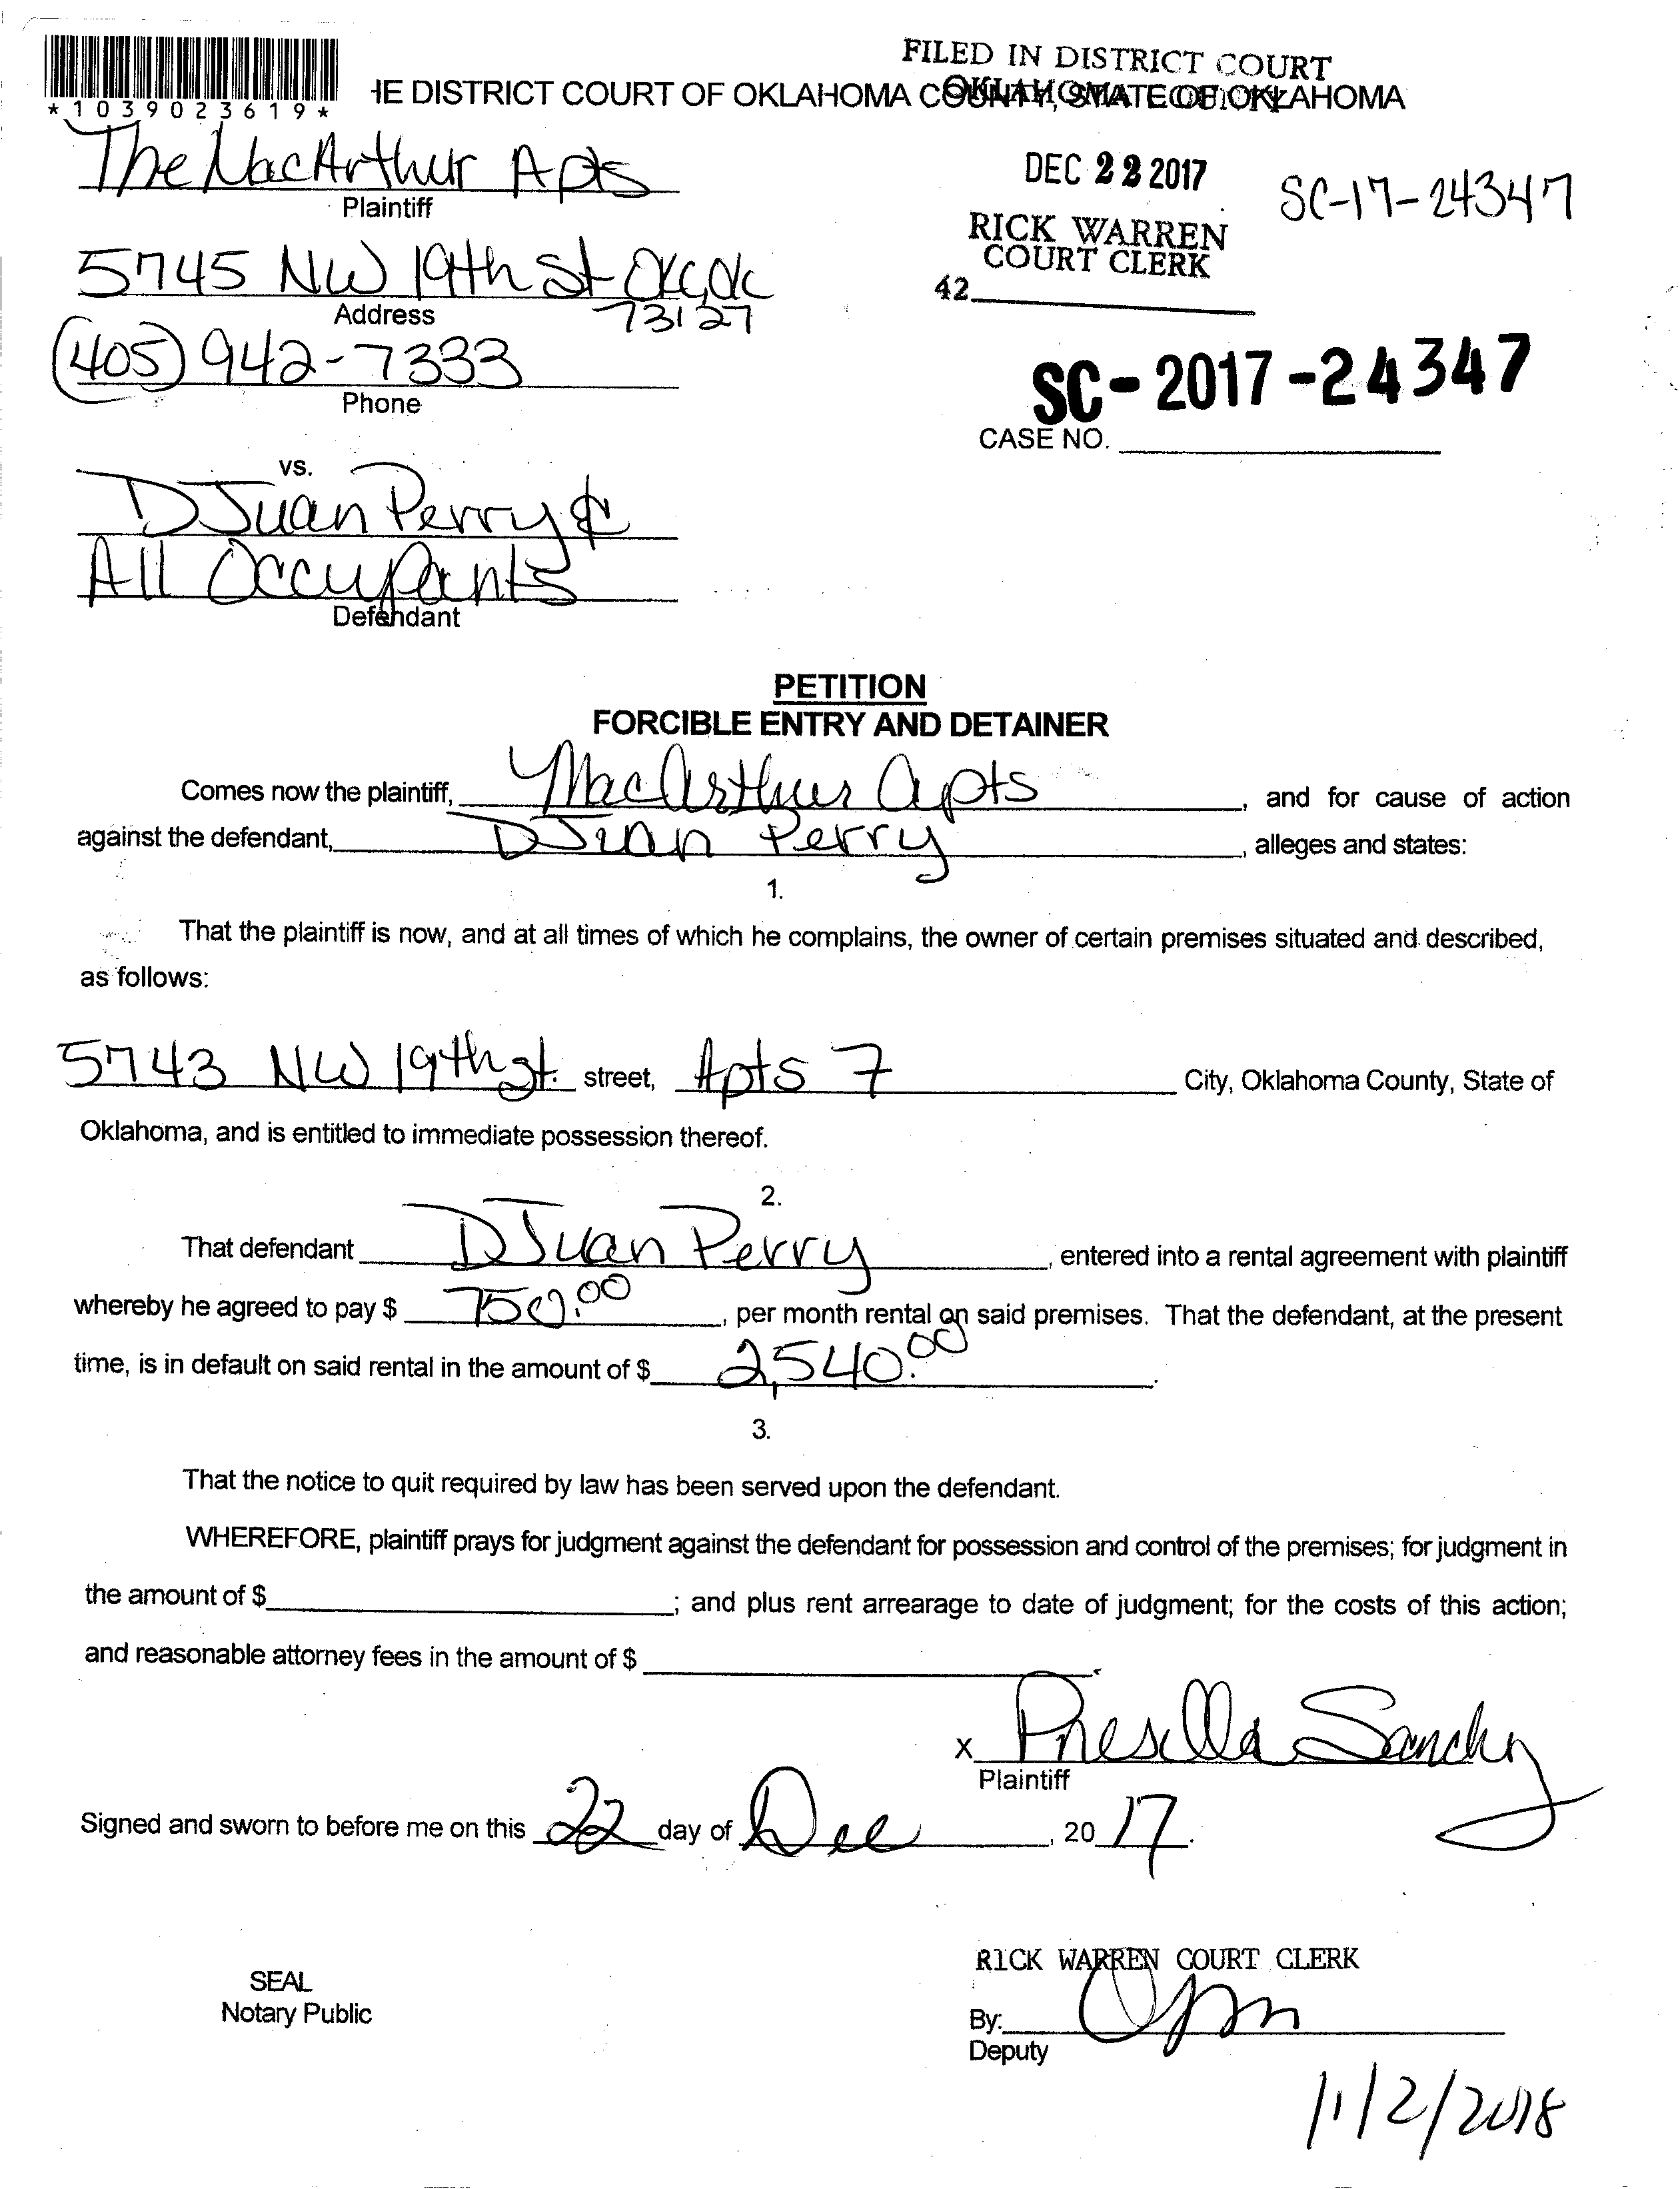 FILED IN DISTRICT COURT
*1039023619*
HE DISTRICT COURT OF OKLAHOMA COUNTY, STATE OF OKLAHOMA
The MacArthur Apts
Plaintiff
DEC 22 2017
SC-17-24347
RICK WARREN
COURT CLERK
42
5745 NW 19th St OKC, OK
73127
Address
(405) 942-7333
Phone
SC-2017-24347
CASE NO.
vs.
DJuan Perry &
All Occupants
Defendant
PETITION
FORCIBLE ENTRY AND DETAINER
Comes now the plaintiff, MacArthur Apts, and for cause of action
against the defendant, DJuan Perry, alleges and states:
1.
That the plaintiff is now, and at all times of which he complains, the owner of certain premises situated and described,
as follows:
5743 NW 19th st. street, Apts 7 City, Oklahoma County, State of
Oklahoma, and is entitled to immediate possession thereof.
2.
That defendant DJuan Perry, entered into a rental agreement with plaintiff
whereby he agreed to pay $ 750.00, per month rental on said premises. That the defendant, at the present
time, is in default on said rental in the amount of $ 2,540.00.
3.
That the notice to quit required by law has been served upon the defendant.
WHEREFORE, plaintiff prays for judgment against the defendant for possession and control of the premises; for judgment in
the amount of $; and plus rent arrearage to date of judgment; for the costs of this action;
and reasonable attorney fees in the amount of $.
x Presilla Sanchz
Plaintiff
Signed and sworn to before me on this 22 day of Dec, 2017.
RICK WARREN COURT CLERK
SEAL
Notary Public
By:
Deputy